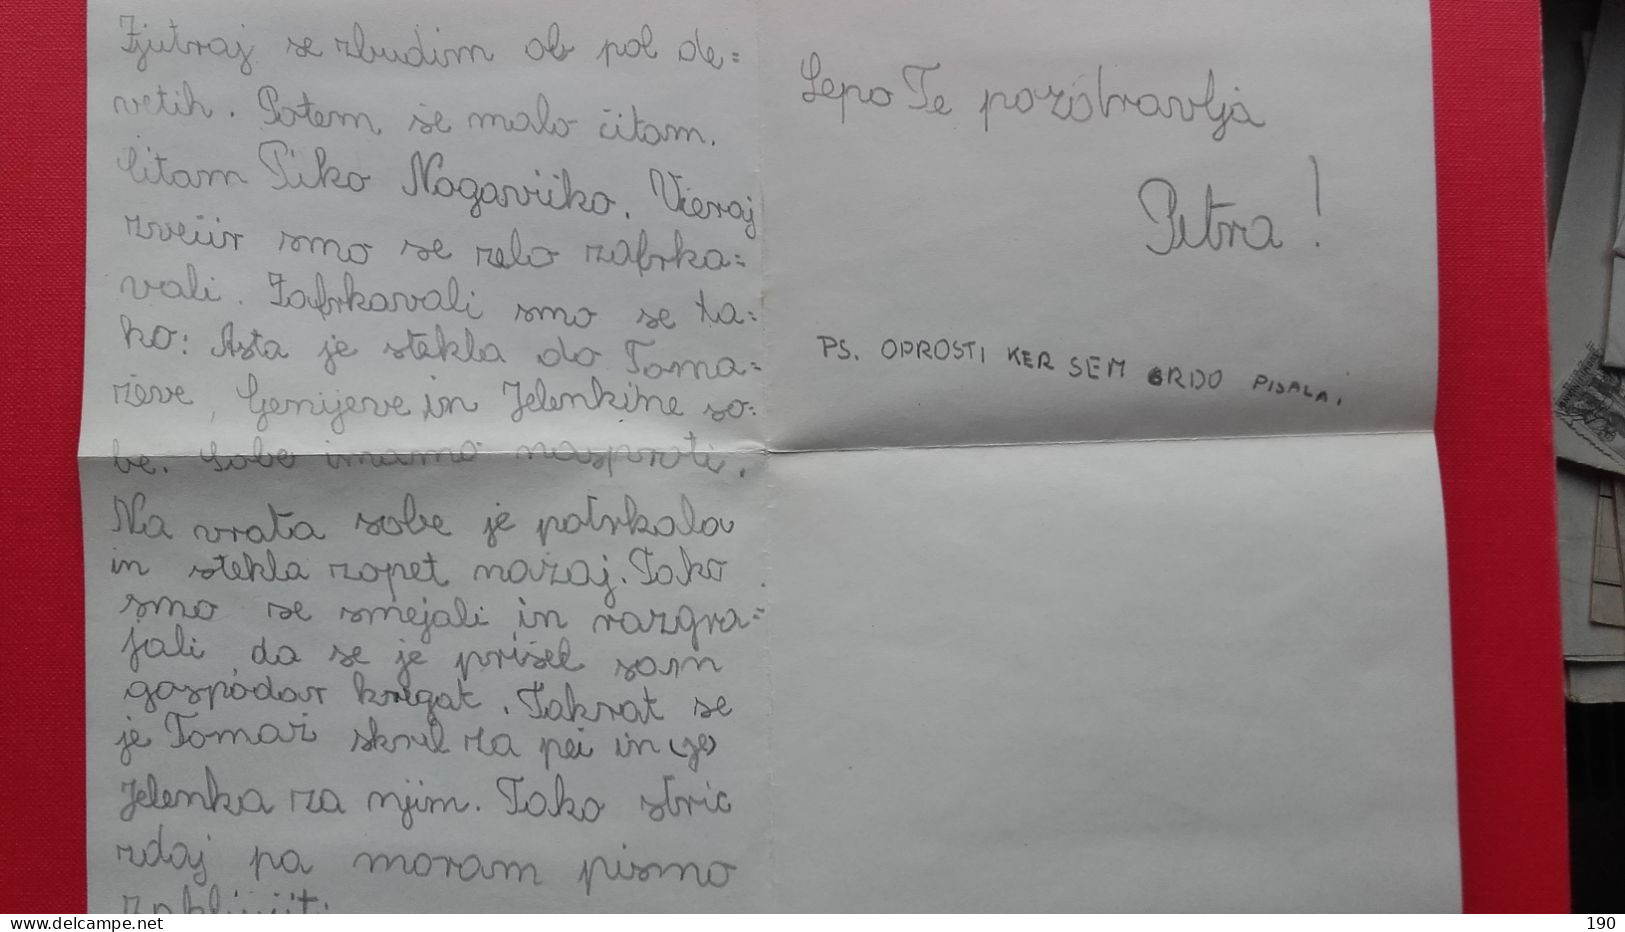 Zjutraj se zbudim ob pol de=
vetih. Potem se malo čitam.
Čitam Piko Nogavičko. Včeraj
zvečir smo se zelo zafrka=
vali. Zafrkavali smo se ta=
ko: Asta je stekla do Toma=
ževe, Genijeve in Jelenkine so=
be. Sobe imamo nasproti.
Na vrata sobe je potrkala
in stekla zopet nazaj. Tako
smo se smejali in razgra=
jali, da se je prišel sam
gospodar kregat. Takrat se
je Tomaž skril za peč in je
Jelenka za njim. Tako stric
zdaj pa moram pismo
zaključiti.
Lepo Te pozdravlja
Petra!
PS. OPROSTI KER SEM GRDO PISALA.
www.delcampe.net
190